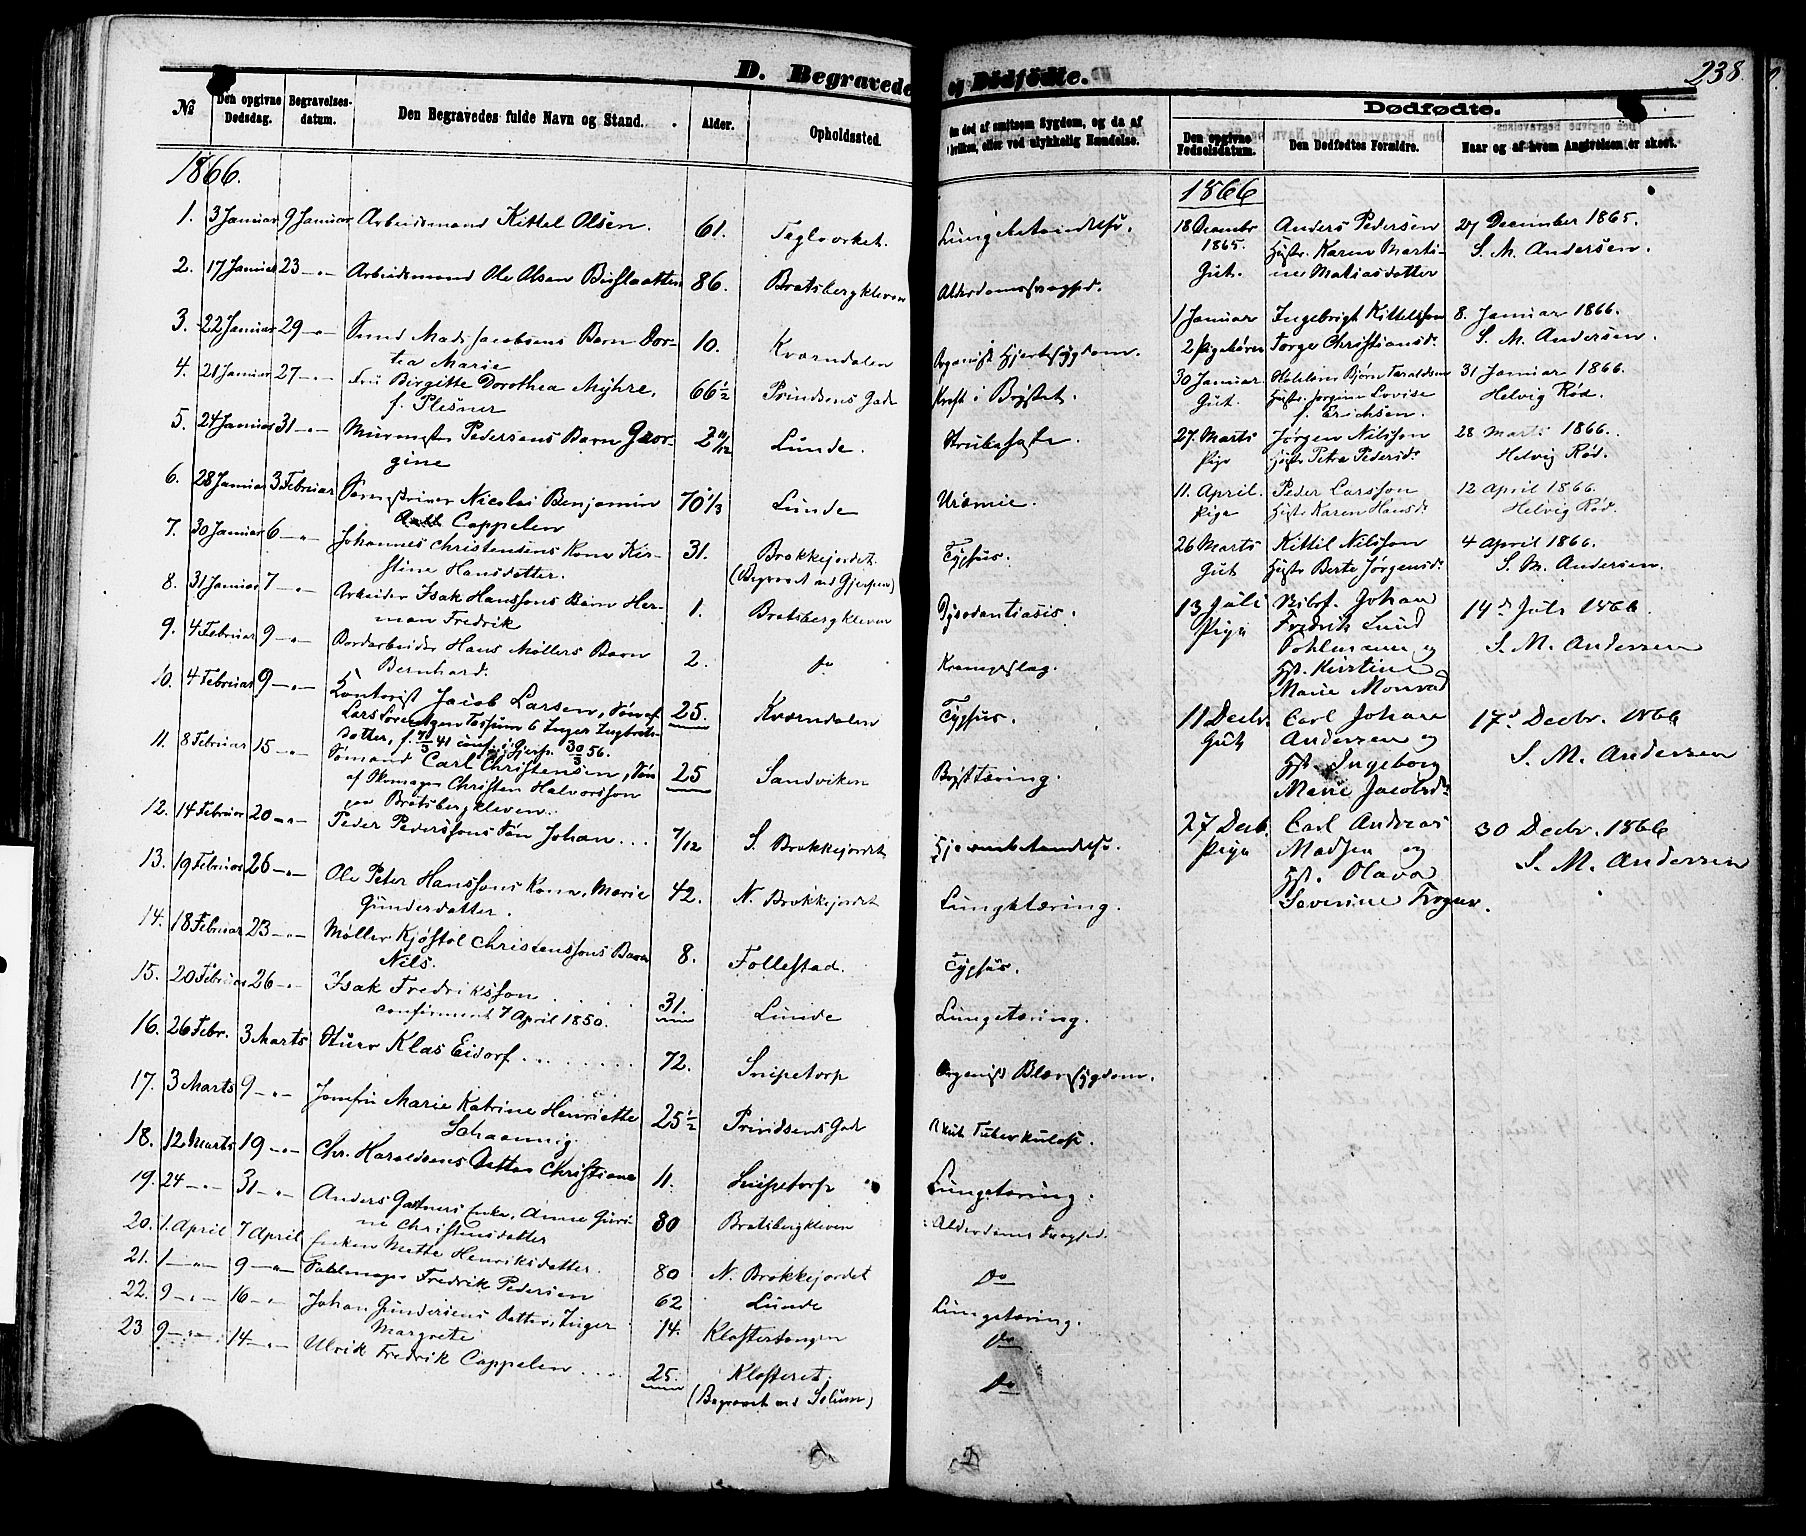 D. Begravede og Dødfødte.
238.
№
Den opgivne Dødsdag.
Begravelses-datum.
Den Begravedes fulde Navn og Stand.
Alder.
Opholdssted.
Om død af smitsom Sygdom, og da af hvilken, eller ved ulykkelig Hændelse.
Dødfødte.
Den opgivne Fødselsdatum.
Den Dødfødtes Forældre.
Naar og af hvem Angivelsen er skeet.
1866.
1. 3 Januar 9 Januar Arbeidsmand Kittel Olsen. 61. Teglverket. Lungebetændelse.
2. 17 Januar 23 –"– Arbeidsmand Ole Olsen 86. Bratsbergkleven Alderdomssvaghed.
3. 22 Januar 29 –"– Smed Mads Jacobsens Barn Dor-
tea Marie 10. Kværndalen Organisk Hjertesygdom.
4. 21 Januar 27 –"– Fru Birgitte Dorothea Myhre,
f. Plesner 66½ Prindsens Gade Kræft i Brystet.
5. 24 Januar 31 –"– Murmester Pedersens Barn Geor-
gine 2 11/12 Lunde. Strubehoste.
6. 28 Januar 3 Februar Sorenskriver Nicolai Benjamin
Aall Cappelen 70 1/3 Lunde Urämie.
7. 30 Januar 6 –"– Johannes Christensens Kone Kir-
stine Hansdatter. 31. Brekkejordet.
(Begravet ved Gjerpen) Typhus.
8. 31 Januar 7 –"– Arbeider Isak Hanssons Barn Her-
man Fredrik 1. Bratsbergkleven Dysodontiasis.
9. 4 Februar 9 –"– Bordarbeider Hans Møllers Barn
Bernhard. 2. do Krampeslag.
10. 4 Februar 9 –"– Kontorist Jacob Larsen, Søn af
Lars Sørensen Fossum & Inger Ingbrets-
datter, f. 7/3 41 conf. i Gjerp. 30/3 56. 25. Kværndalen Typhus.
11. 8 Februar 15 –"– Sømand Carl Christensen, Søn
af Skomager Christen Halvorsson
paa Bratsbergkleven. 25 Sandviken Brysttæring.
12. 14 Februar 20 –"– Peder Pederssons Søn Johan... 7/12 S. Brekkejordet Hjernebetændelse.
13. 19 Februar 26 –"– Ole Peter Hanssons Kone, Marie
Gundersdatter. 42. N. Brekkejordet Lungetæring.
14. 18 Februar 23 –"– Møller Kjøstol Christenssons Barn
Nils. 8. Follestad. Typhus.
15. 20 Februar 26 –"– Isak Fredriksson
confirmeret 7 April 1850. 31. Lunde Lungetæring.
16. 26 Febr. 3 Marts Stuer Klas Eidorf........ 72. Snipetorp Organisk Blæresygdom.
17. 3 Marts 9 –"– Jomfru Marie Katrine Henriette
Schanning. 25½ Prindsens Gade Akut Tuberkulose.
18. 12 Marts 19 –"– Chr. Haraldsens Datter Christiane 11. Snipetorp Lungetæring.
19. 24 –"– 31 –"– Anders Gartners Enke, Anne Guri-
ne Christensdatter 80 Bratsbergkleven Alderdomssvaghed.
20. 1. April 7 April Enken Mette Henriksdatter. 80 N. Brekkejordet Do
21. 1 –"– 9 –"– Fredrik Pedersen 62 Lunde Lungetæring.
22. 9 –"– 16 –"– Johan Gundersens Datter, Inger
Margrete 14. Klostertangen Do
23 9 –"– 14 –"– Ulrik Fredrik Cappelen.... 25. Klosteret.
(Begravet ved Solum) Do
1866
18 Decembr 1865. Gut. Anders Pedersen
Hustr. Karen Marti-
ne Mathiasdatter 27 December 1865.
S. M. Andersen.
1 Januar 2 Pigebørn Ingebrigt Kittelsson
Torge Christiansd. 8. Januar 1866.
S. M. Andersen.
30 Januar Gut. Bjørn Taraldsen
Hustr. Jørgine Lovise
f. Erichsen. 31 Januar 1866.
Helvig Rød.
27. Marts Pige Jørgen Nilsson
Hustr. Petra Pedersd. 28 Marts 1866.
Helvig Rød.
11. April. Pige Peder Larsson
Hustr. Karen Hansd. 12 April 1866.
Helvig Rød.
26 Marts Gut Kittil Nilsson
Hustr. Berte Jørgensd. 4 April 1866.
S. M. Andersen.
13 Juli Pige Johan
Fredrik Lund
Pohlmann og
Hst. Kirstine
Marie Monrad 14d Juli 1866
S. M. Andersen
11 Decbr. Gut Carl Johan
Andersen og
Hst. Ingeborg
Marie Jacobsd. 17d Decbr. 1866
S. M. Andersen
27 Decb. Pige Carl Andreas
Madsen og
Hst. Olava
Severine Trogen. 30 Decbr. 1866
S. M. Andersen